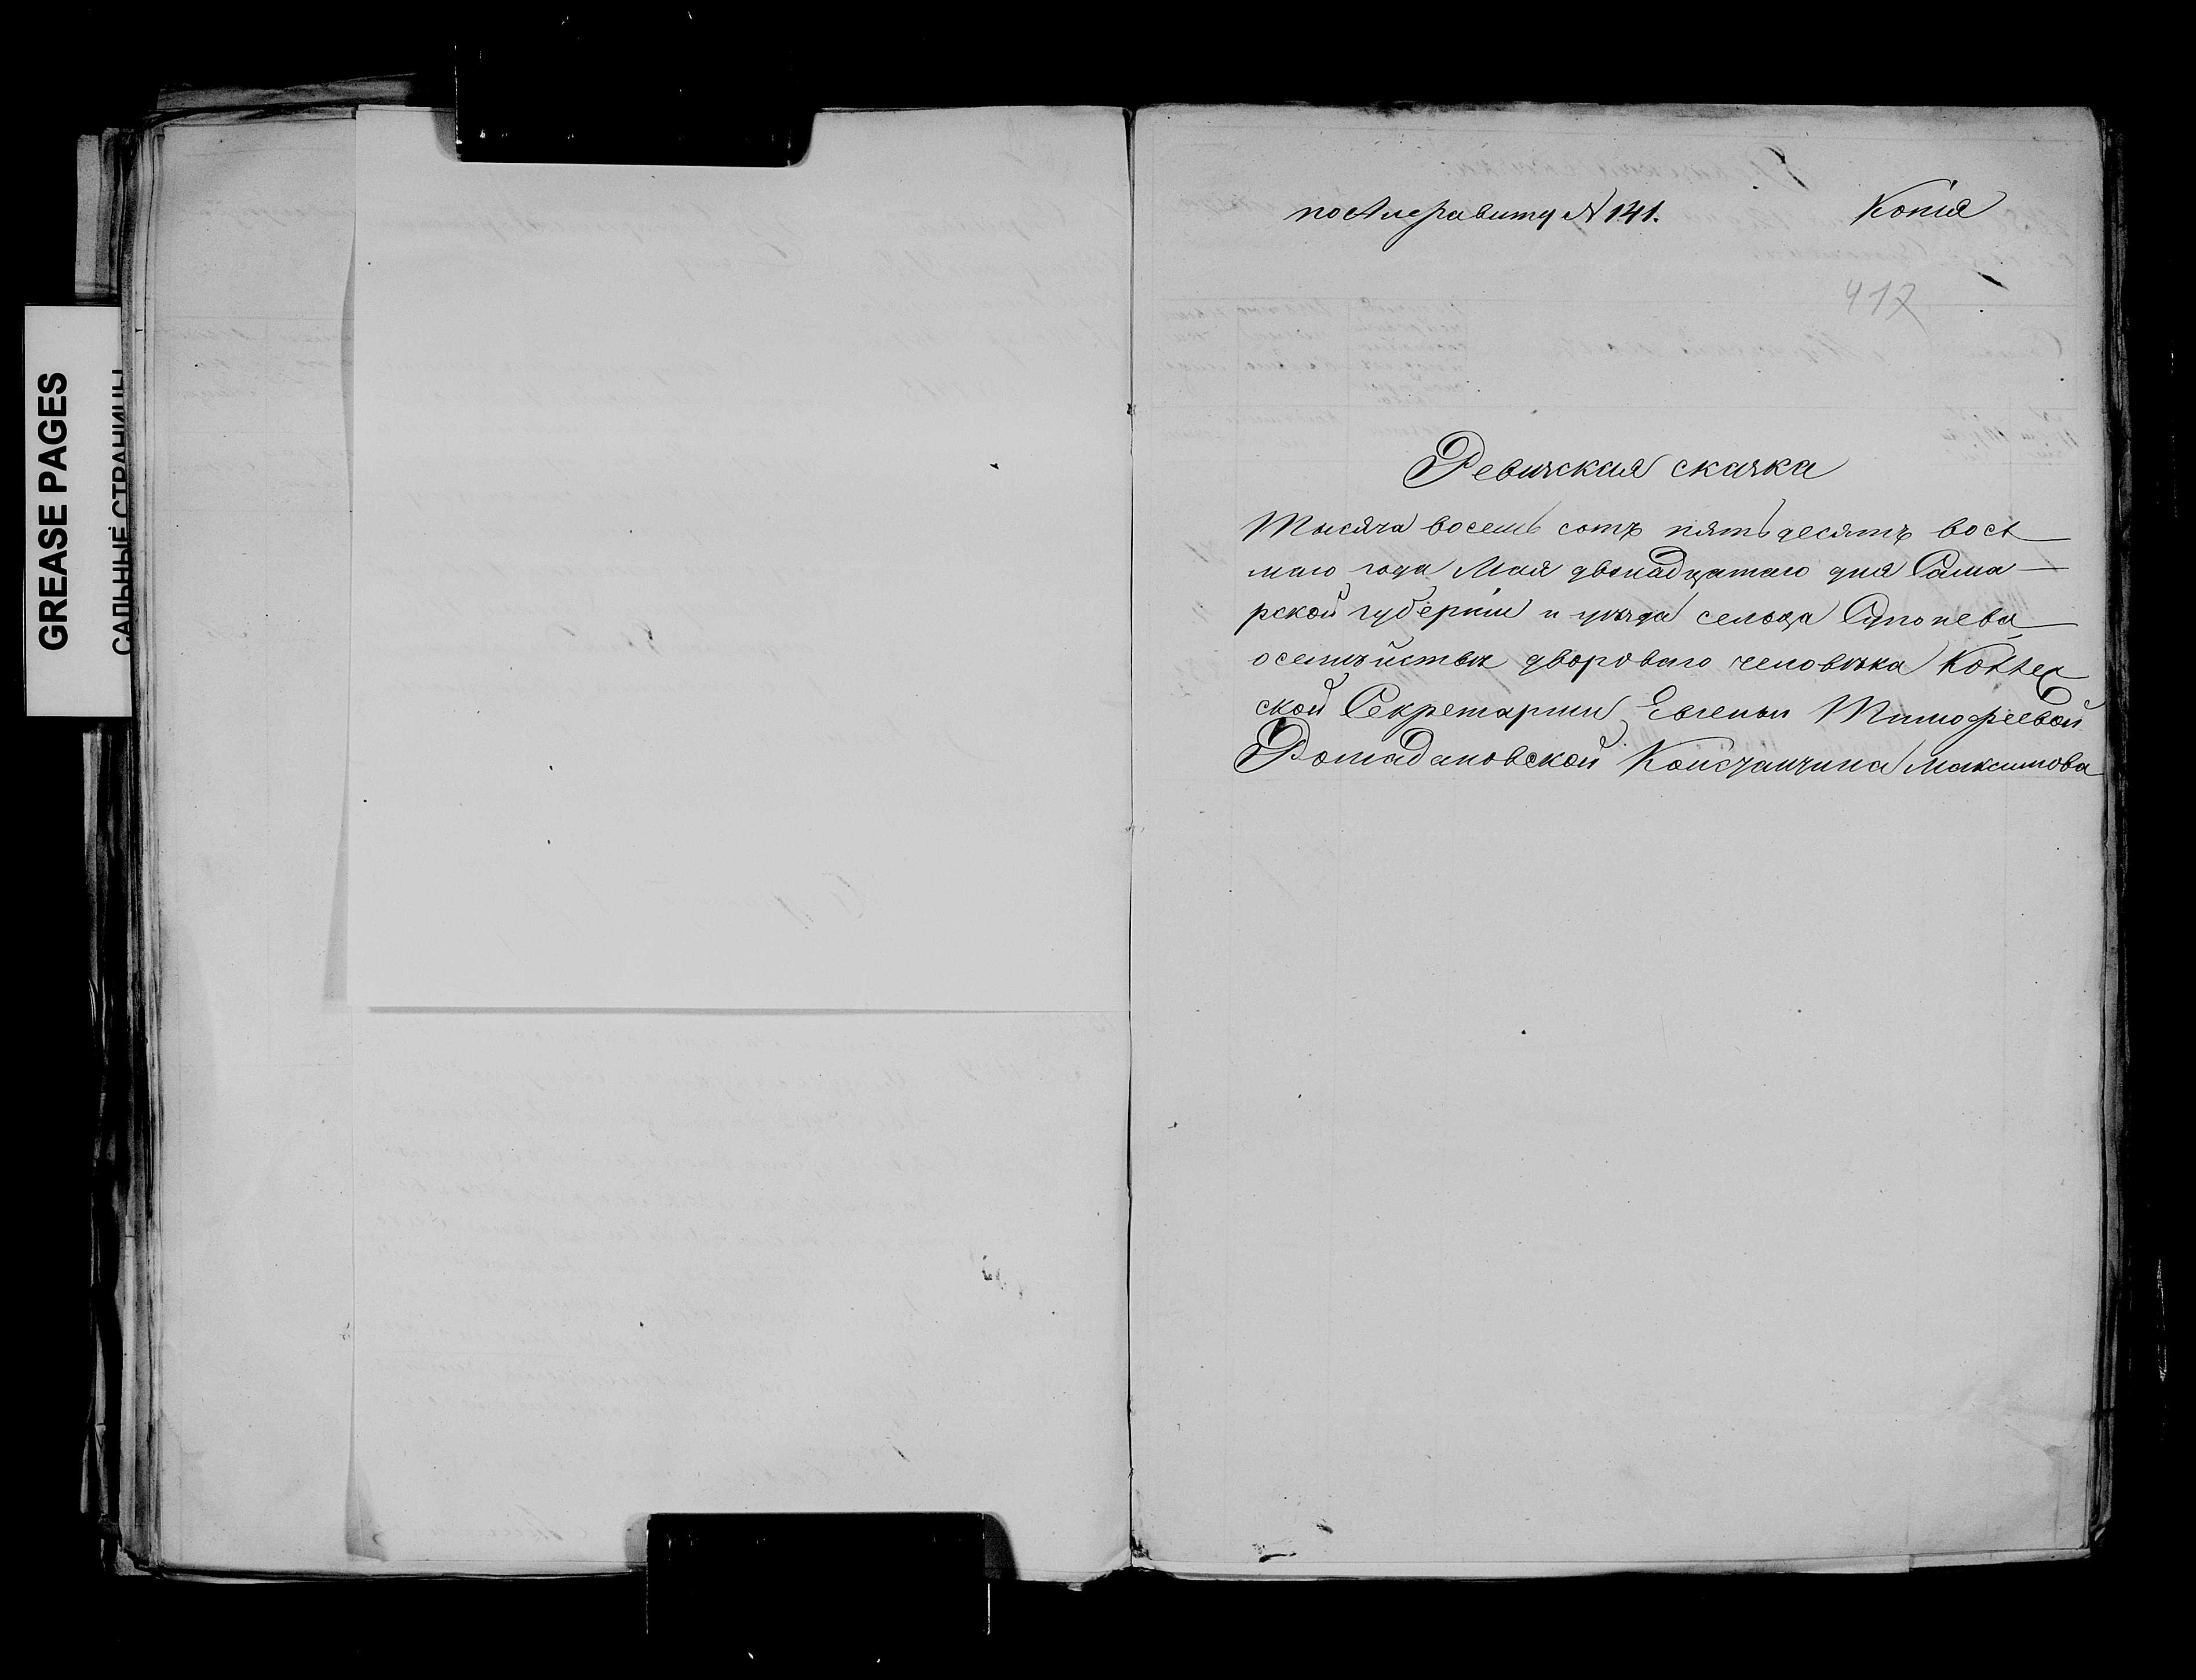 GREASE PAGES
САЛЬНЫЕ СТРАНИЦЫ
по алфавиту № 141.
Копія
417
Ревизская сказка
Тысяча восемь сотъ пятьдесятъ вось
маго года Мая двенадцатаго дня Сама
рской губерніи и уѣзда сельца
о семѣйствѣ двороваго человѣка Коллеж
ской Секретарши Евгеньи Тимофеевой
Ромадановской Константина Максимова